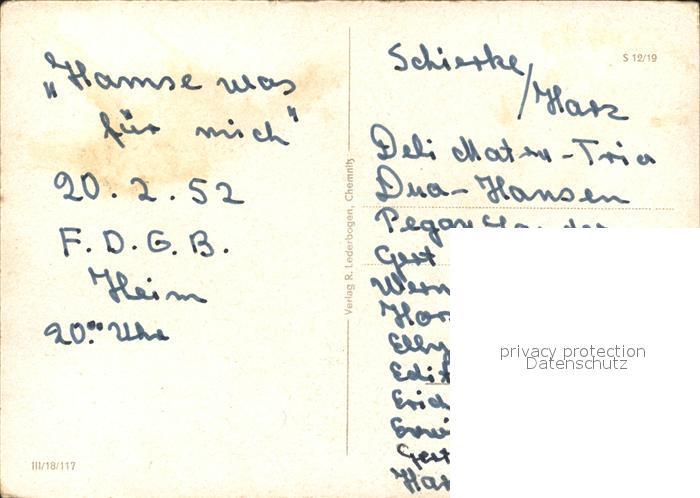 „Hamse was
für mich"
20. 2. 52
F. D. G. B.
Heim
20.00 Uhr
III/18/117
Verlag R. Lederbogen, Chemnitz
S 12/19
Schierke
/Harz
Deli -Trio
Duo-Hansen
Gert
Wern
Har
Elly
Edit
Eric
Gert
privacy protection
Datenschutz